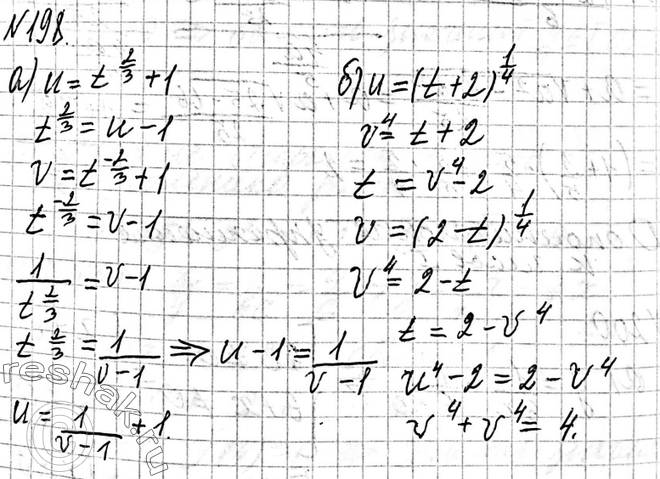 №198.
а) u = t^(2/3) + 1
t^(2/3) = u - 1
v = t^(-2/3) + 1
t^(-2/3) = v - 1
1/t^(2/3) = v - 1
t^(2/3) = 1/(v - 1) => u - 1 = 1/(v - 1)
u = 1/(v - 1) + 1.
б) u = (t + 2)^(1/4)
v^4 = t + 2
t = v^4 - 2
v = (2 - t)^(1/4)
v^4 = 2 - t
t = 2 - v^4
u^4 - 2 = 2 - v^4
v^4 + v^4 = 4.
reshak.ru